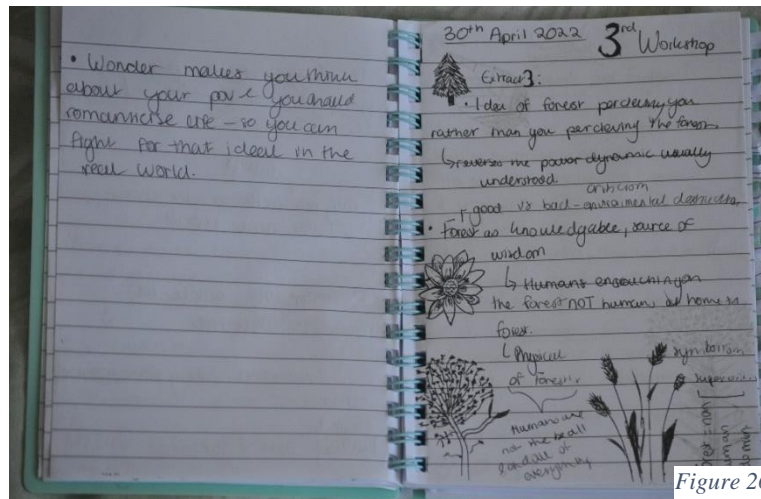 • Wonder makes you think
about your       you should
romanticise life – so you can
fight for that ideal in the
real world.
30th April 2022 3rd Workshop
Extract 3:
• Idea of forest percieving you
rather than you percieving the forest
↳ reverses the power dynamic usually
understood.
criticism
good vs bad – environmental destruction
• Forest as knowledgable, source of
wisdom
↳ Humans encroaching on
the forest NOT human at home in
forest.
↳ Physical
of forest
Humans are
not the be all
& end all of
everything
symbolism
forest = non
human
Figure 20